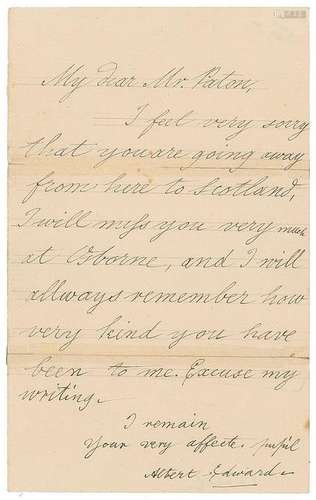 My dear Mr. Paton,
I feel very sorry
that you are going away
from here to Scotland,
I will miss you very much
at Osborne, and I will
allways remember how
very kind you have
been to me. Excuse my
writing.
I remain
Your very affecte. pupil
Albert Edward